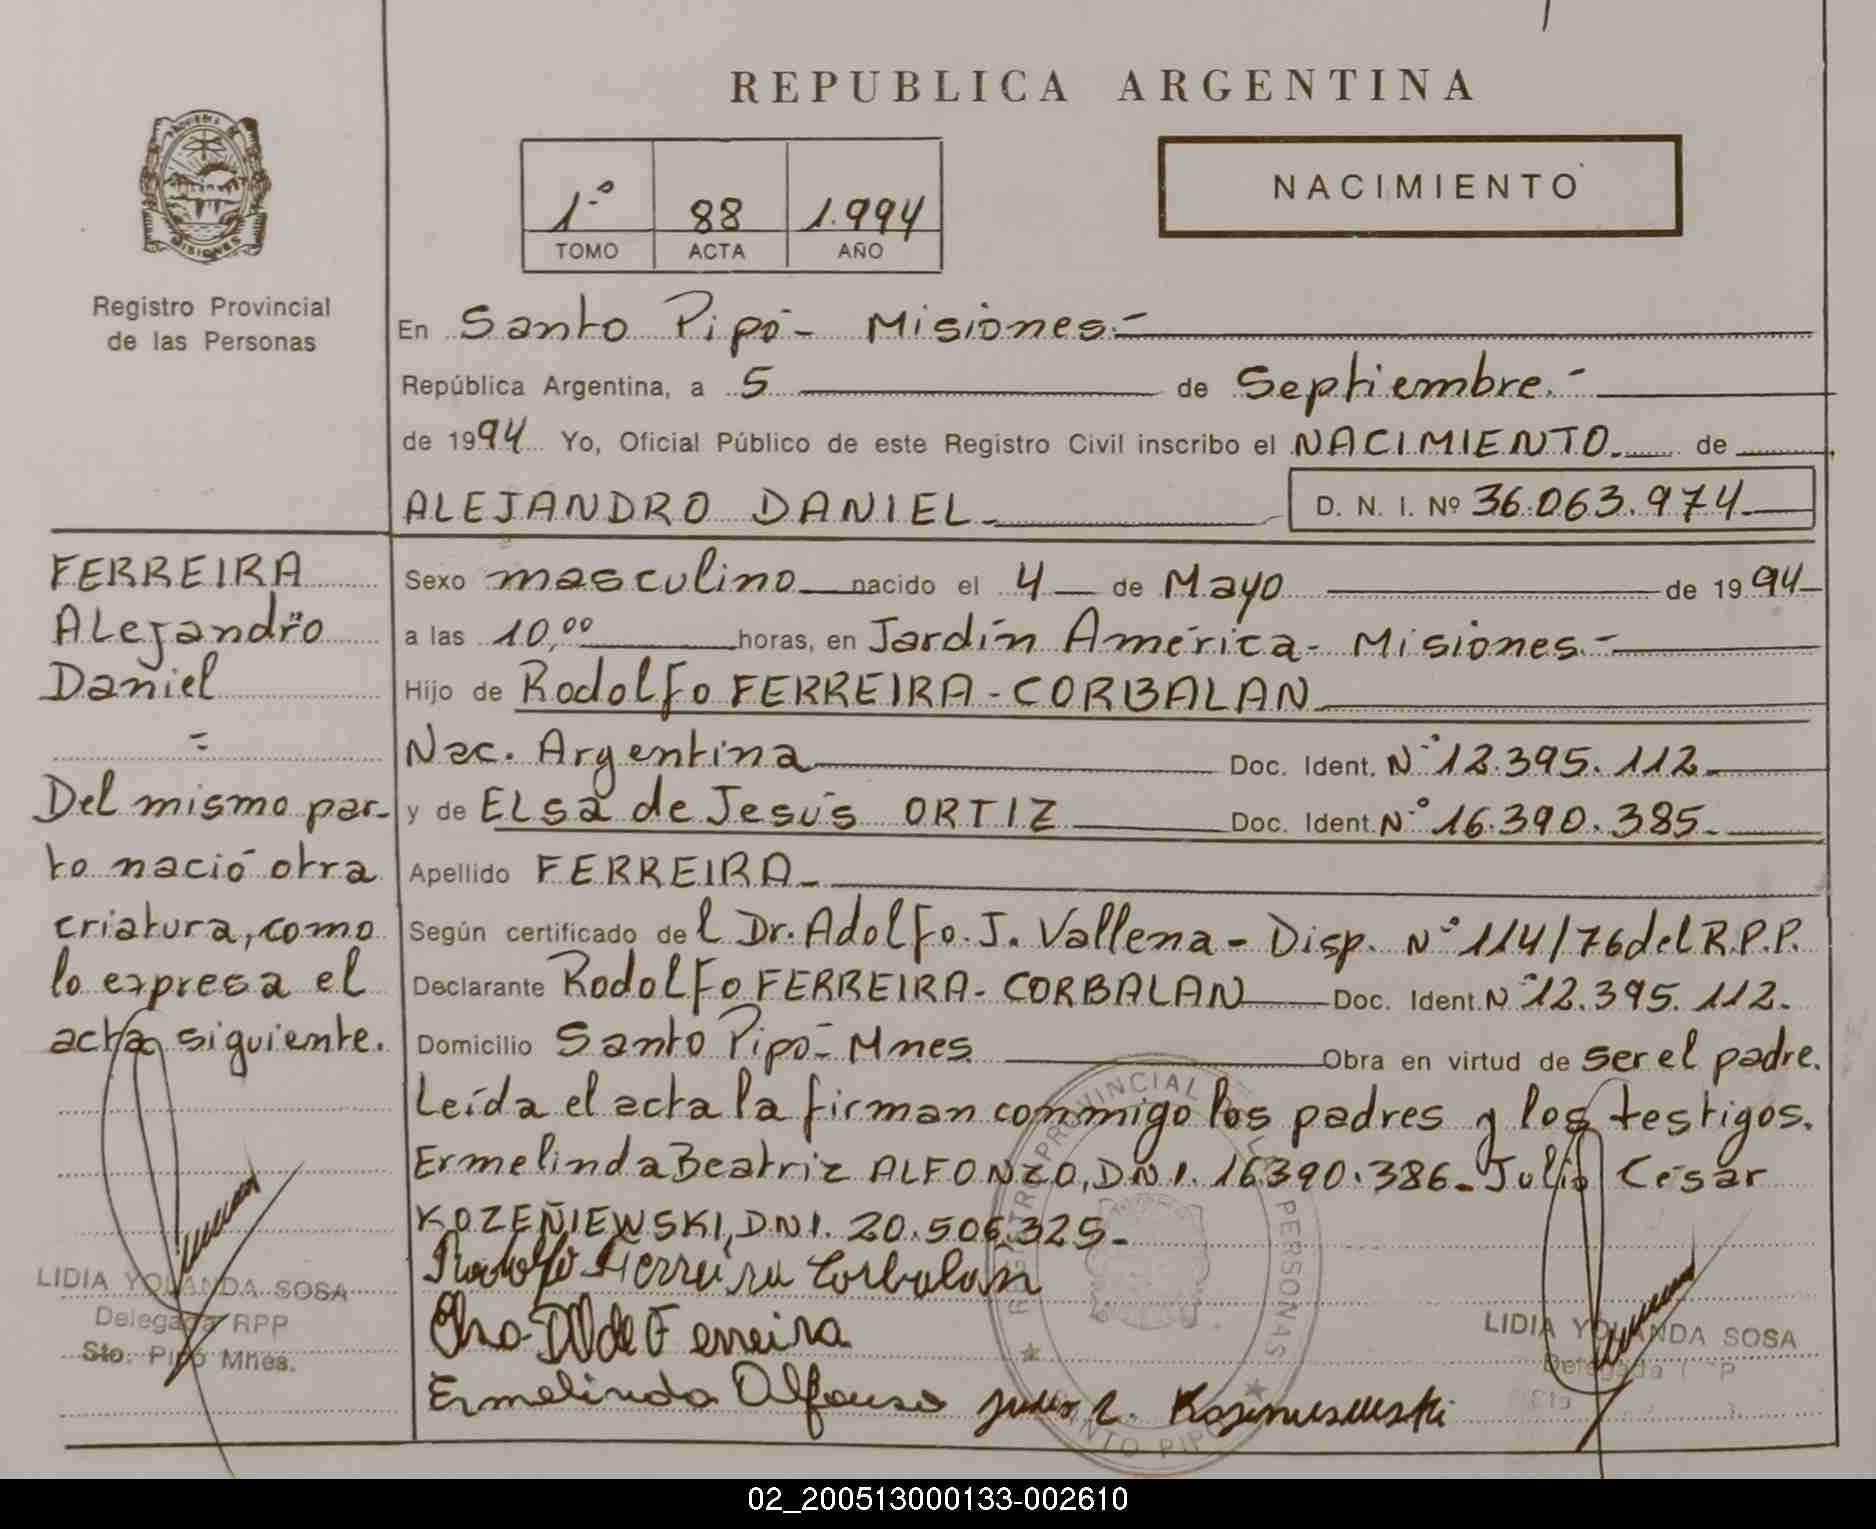 REPUBLICA ARGENTINA
PROVINCIA DE
MISIONES
Registro Provincial
de las Personas
1º 88 1.994
TOMO ACTA AÑO
NACIMIENTO
En Santo Pipó - Misiones.-
República Argentina, a 5 de Septiembre.-
de 1994 Yo, Oficial Público de este Registro Civil inscribo el NACIMIENTO. de
ALEJANDRO DANIEL. D. N. I. Nº 36.063.974
FERREIRA
Alejandro
Daniel
=
Del mismo par-
to nació otra
criatura, como
lo expresa el
acta siguiente.
LIDIA YOLANDA SOSA
Delegada RPP
Sto. Pipó Mnes.
Sexo masculino nacido el 4 de Mayo de 1994
a las 10,00 horas, en Jardín América - Misiones.-
Hijo de Rodolfo FERREIRA - CORBALAN
Nac. Argentina Doc. Ident. Nº 12.395.112.
y de Elsa de Jesús ORTIZ Doc. Ident. Nº 16.390.385.
Apellido FERREIRA
Según certificado del Dr. Adolfo. J. Vallena - Disp. Nº 114/76 del R.P.P.
Declarante Rodolfo FERREIRA - CORBALAN Doc. Ident. Nº 12.395.112.
Domicilio Santo Pipó - Mnes Obra en virtud de ser el padre.
Leída el acta la firman conmmigo los padres y los testigos.
Ermelinda Beatriz ALFONZO, DNI. 16.390.386 - Julio César
KOZEÑIEWSKI, DNI. 20.506.325 -
Rodolfo Ferreira Corbalán
Ferreira
Ermelinda Alfonso
REGISTRO PROVINCIAL DE LAS PERSONAS
SANTO PIPO
LIDIA YOLANDA SOSA
Delegada
02_200513000133-002610